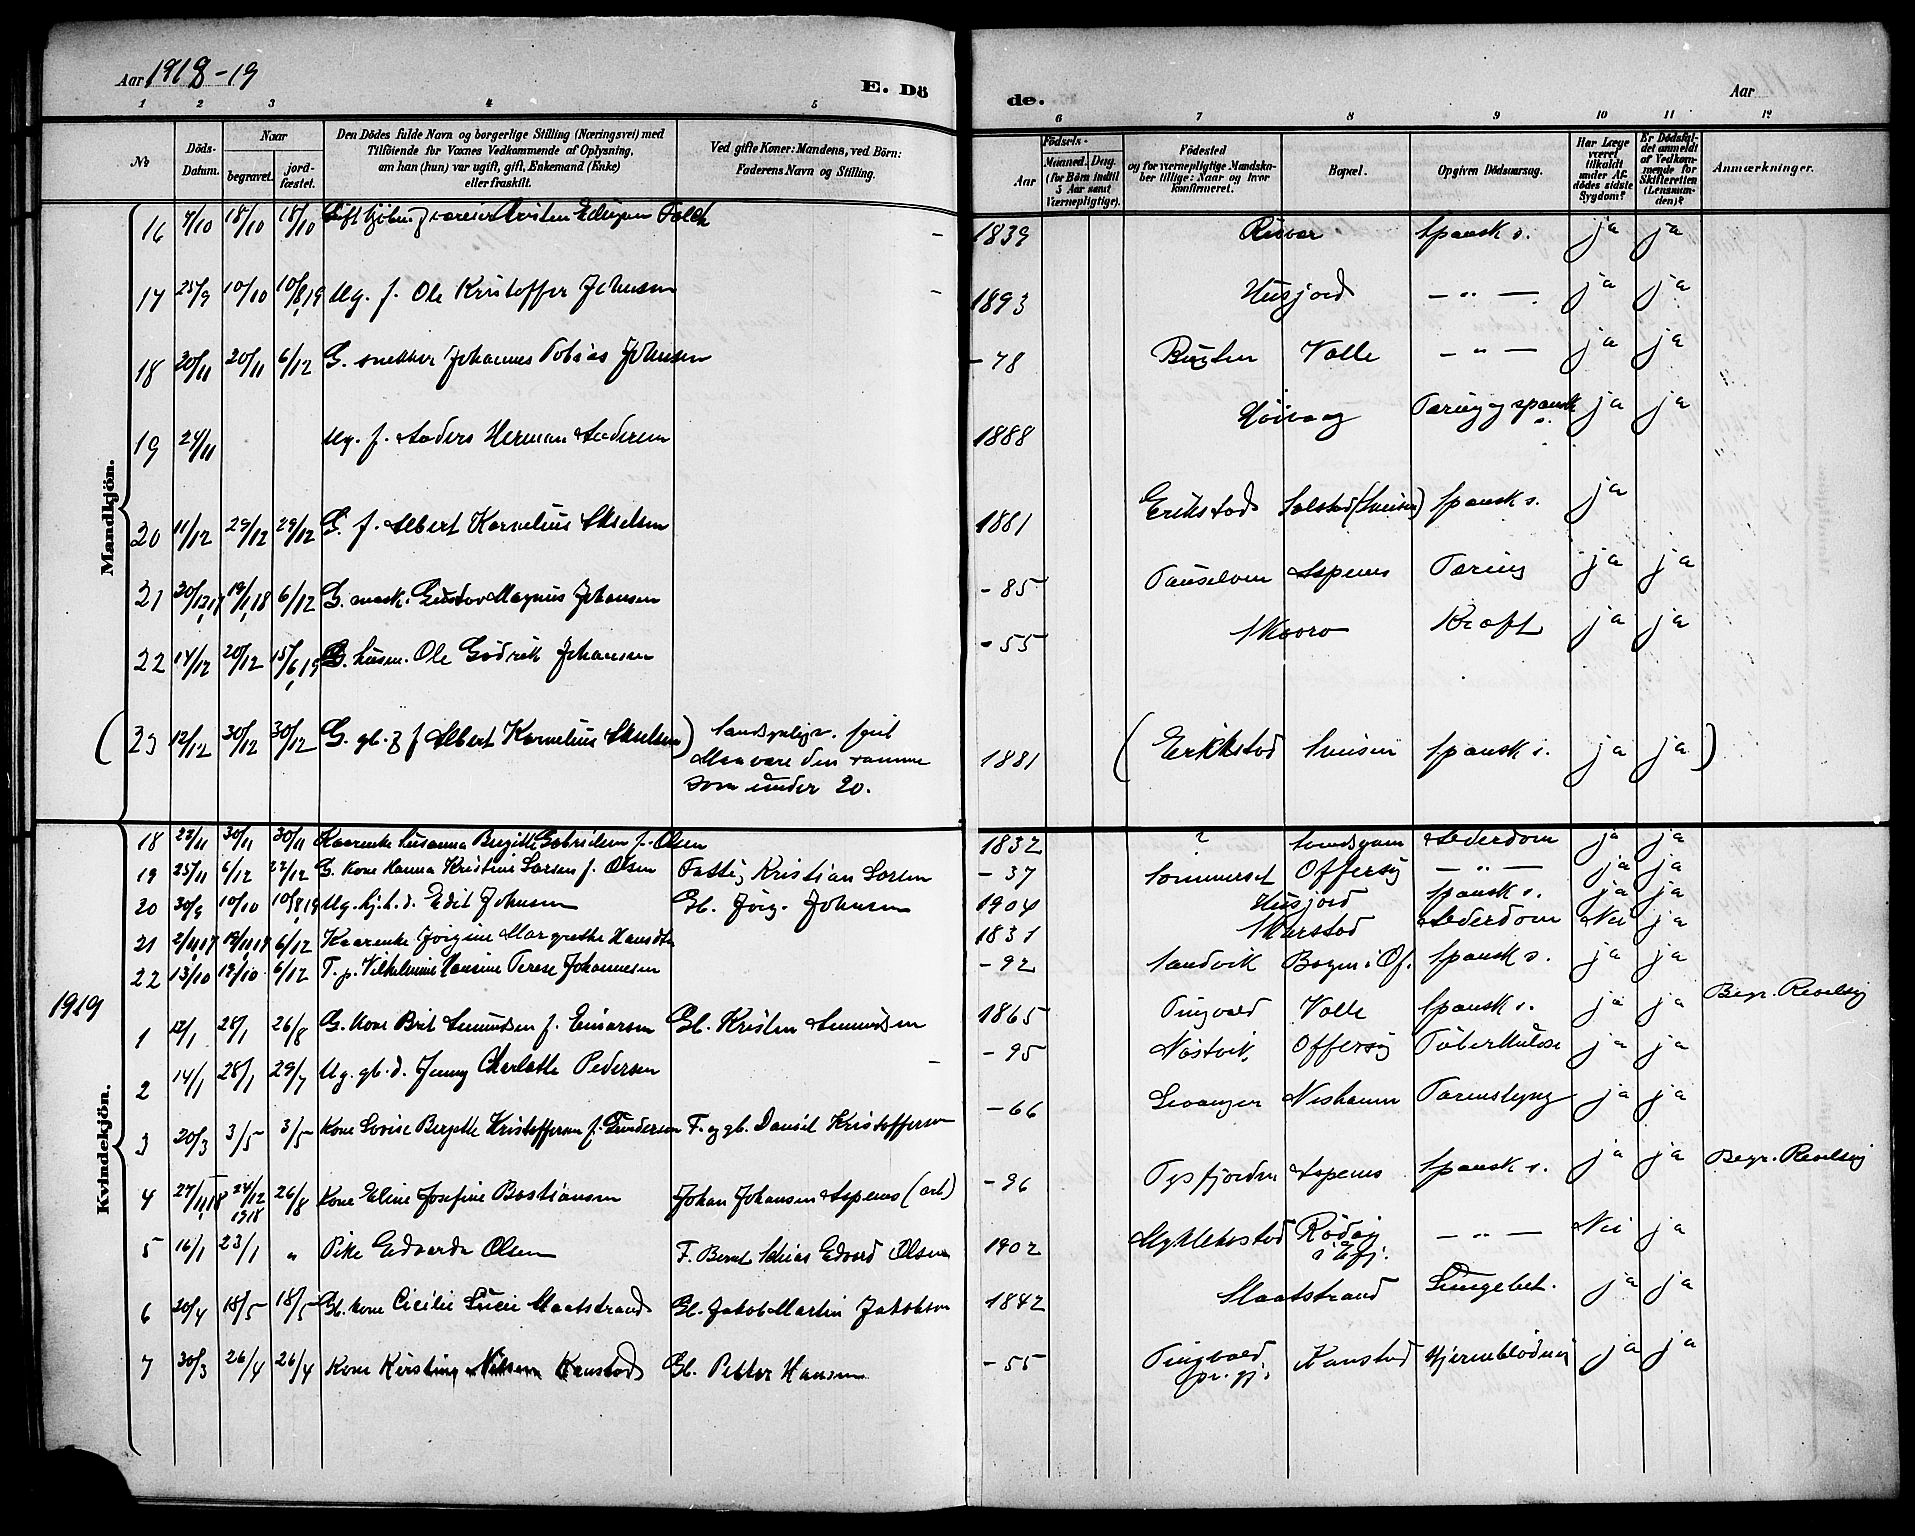 Aar 1918-19
E. Dö
de.
Aar
1 2 3 4 5 6 7 8 9 10 11 12
No
Döds-Datum.
Naar
begravet.
jord-fæstet.
Den Dödes fulde Navn og borgerlige Stilling (Næringsvei) med
Tilföiende for Voxnes Vedkommende af Oplysning,
om han (hun) var ugift, gift, Enkemand (Enke)
eller fraskilt.
Ved gifte Koner: Mandens, ved Börn:
Faderens Navn og Stilling.
Födsels-
Aar
Maaned. Dag.
(for Börn indtil
5 Aar samt
Værnepligtige).
Födested
og for værnepligtige Mandska-
ber tillige: Naar og hvor
konfirmeret.
Bopæl.
Opgiven Dödsaarsag.
Har Læge
været
tilkaldt
under Af-
dödes sidste
Sygdom?
Er Dödsfal-
det anmeldt
af Vedkom-
mende for
Skifteretten
(Lensman-
den)?
Anmærkninger.
Mandkjön.
16 7/10 18/10 18/10 Kristen Falch - 1839 Risvær Spansk s. ja ja
17 25/9 10/10 10/8 19 Ug. f. Ole Kristoffer Johnsen - 1893 Husjord - " - ja ja
18 20/11 20/11 6/12 G. snekker Johannes Tobias Johnsen - 78 Valle - " - ja ja
19 24/11 Ug. f. Anders Herman Andersen 1888 Höivaag Tæring og spansk s. ja ja
20 11/12 29/12 29/12 G. f. Albert Kornelius Akselsen 1881 Erikstad Spansk s. ja
21 30/12 17 19/1 18 6/12 G. mask. Gustav Magnus Johansen - 85 Aspenes Tæring ja ja
22 14/12 20/12 15/6 19 G. husm. Ole Gödrik Johansen - 55 Skaaro Kræft ja ja
(23 12/12 30/12 30/12 G. gb. & f Albert Kornelius Akselsen) Sandsynligv. feil
Maa være den samme
som under 20.
1881 (Erikstad Spansk s. ja ja)
Kvindekjön.
18 23/11 30/11 30/11 Kaarenke Susanna Birgitte Gabrielsen f. Olsen 1832 ? Alderdom ja ja
19 25/11 6/12 22/12 G. kone Hanna Kristine Larsen f. Olsen Fattig Kristian Larsen - 37 Sommerset Offersöy - " - ja ja
20 30/9 10/10 10/8 19 Ug. hj. h. d. Edit Johnsen Gb. Jörg. Johnsen 1904 Husjord Spansk s. ja ja
21 2/11 17 6/12 Kaarenke Jörgine Margrethe Hansdtr 1831 Skarstad Alderdom Nei ja
22 13/10 19/10 6/12 T. p. Vilhelmine Hansine Terese Johannesen - 92 Sandvik Bogen i Of. Spansk s. ja ja
1919
1 12/1 28/1 26/8 G. kone Brit Amundsen f. Einarsen Gb. Kristen Amundsen 1865 Tingvold Valle Spansk s. ja ja Begr. Revelsöy
2 14/1 28/1 29/7 Ug. gb. d. Jenny Charlotte Pedersen - - 95 Nöstvik Offersöy Tuberkulose ja ja
3 20/3 3/5 3/5 Kone Lovise Bergitte Kristoffersen f. Gundersen F. og gb. Daniel Kristoffersen - 66 Levanger Neshavn Tarmslyng ja ja
4 27/11 18 24/12 1918 26/8 Kone Eline Josefine Bastiansen Johan Johansen Aspenes (arb) - 96 Tysfjorden Aspenes Spansk s. ja ja Begr. Revelsöy
5 16/1 23/1 " Pike Edvarda Olsen F. Bernt Edvard Olsen 1902 Myklebostad Rödöy - " - Nei ja
6 20/4 18/5 18/5 Gb. kone Cicilie Lucie Slaatstrand Gb. Jakob Martin Jakobsen 1842 Slaatstrand Lungebet. ja ja
7 30/3 26/4 26/4 Kone Kirsting Nilsen Kanstad Gb. Petter Hansen - 55 Tingvold pr. gj. Kanstad Hjerneblödning ja ja